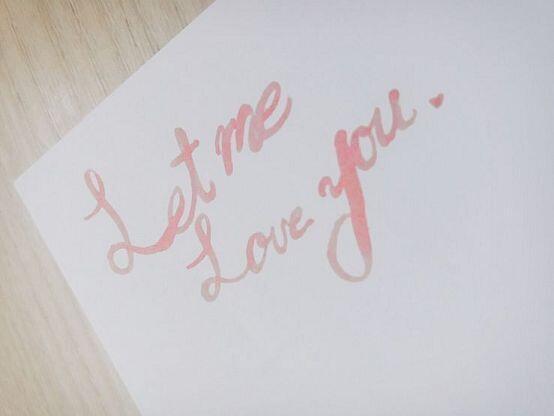 Let me
Love you.